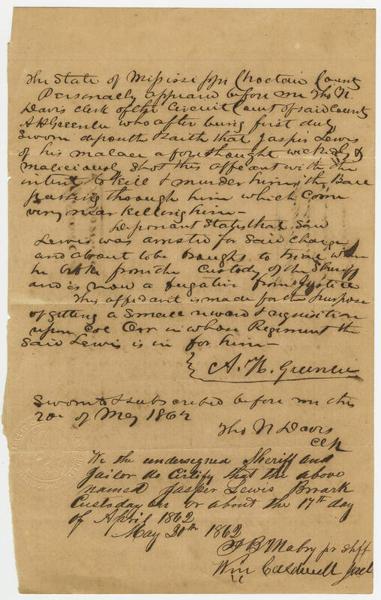 The State of Mississippi Choctaw County
Personally appeared before me Tho N.
Davis clerk of the Circuit Court of said County
A H Greenlee who after being first duly
Sworn deposeth & saith that Jasper Lewis
of his malace aforethought wickedly &
maliciously Shot this affiant with the
intent to kill & murder him, the Ball
passing through him which come
very near killing him —
Deponant States that Said
Lewis was arrested for Said Charge
and about to be brought to trial when
he broke from the Custody of the Sheriff
and is now a fugative from Justice
This affidavit is made for the purpose
of getting a Small reward & requisition
upon Col Orr in whose Regiment the
Said Lewis is in for him —
A. H. Greenlee
Sworn to & subscribed before me this
20th of May 1862
Tho N Davis
Clk
We the undersigned Sheriff and
Jailor do Certify that the above
named Jasper Lewis Broark
Custody on or about the 17th day
of April 1862
May 20th 1862
J B Mabry shff
Wm Caldwell Jail